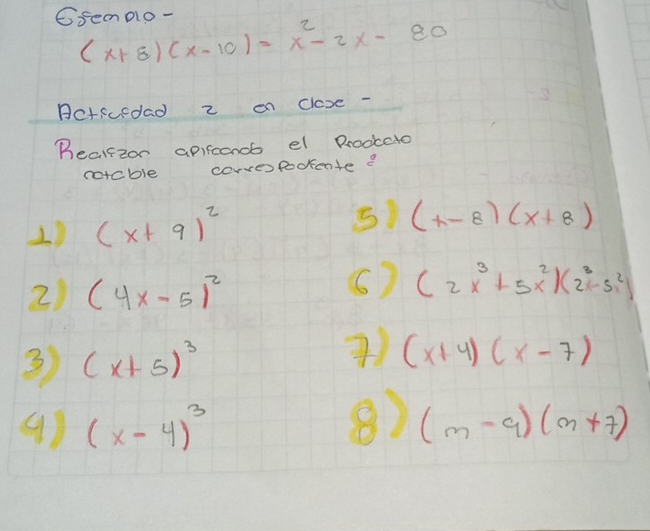 Ejemplo -
(x+8)(x-10) = x² - 2x - 80
Actividad 2 en clase -
Realizar aplicando el Producto
notable correspondiente :
1) (x+9)²
2) (4x-5)²
3) (x+5)³
4) (x-4)³
5) (x-8)(x+8)
6) (2x³+5x²)(2x³-5x²)
7) (x+4)(x-7)
8) (m-9)(m+7)